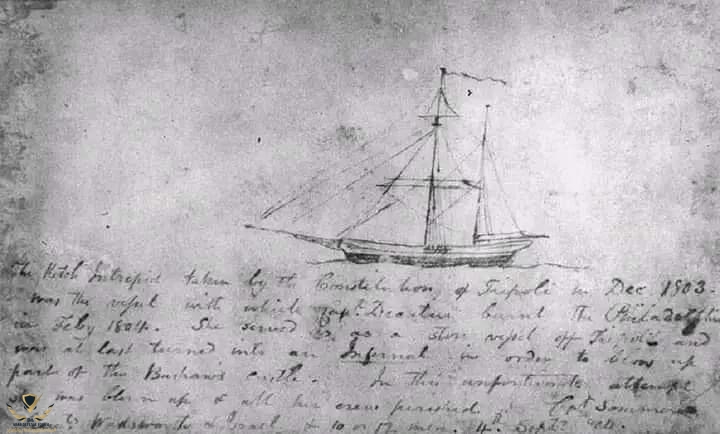 The Ketch Intrepid taken by the Constitution off Tripoli in Dec 1803 -
was the vessel with which Capt. Decatur burnt the Philadelphia
in Feby 1804. She served as a store vessel off Tripoli and
was at last turned into an Infernal in order to blow up
part of the Bashaw's castle. In this unfortunate attempt
was blown up & all her crew perished. Capt Sommers
Wadsworth & Israel & 10 or 12 men. 4th Septr 1804.